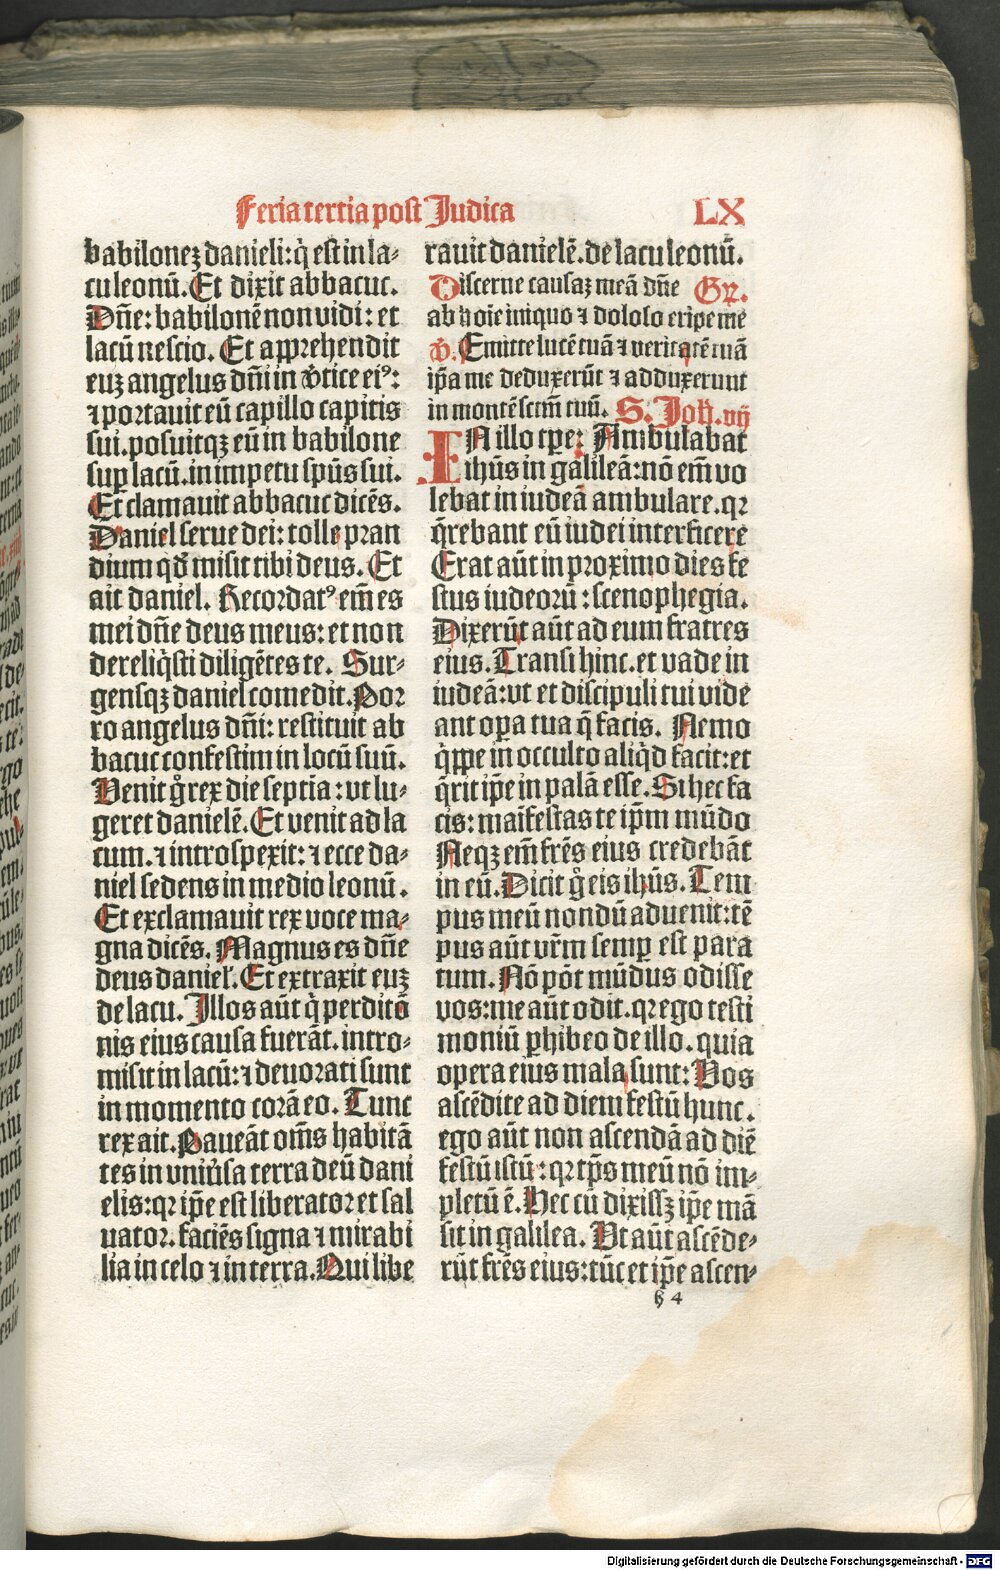 Feria tertia post Judica LX
babiloneꝫ danieli: q̇ est in la⸗
cu leonū. Et dixit abbacuc.
Dn̄e: babilonē non vidi: et
lacū nescio. Et apprehendit
euꝫ angelus dn̄i in v̓tice eiꝰ:
⁊ portauit eū capillo capitis
sui. posuitqꝫ eū in babilone
suꝑ lacū. in impetu spūs sui.
Et clamauit abbacuc dicēs.
Daniel serue dei: tolle pran
dium qd̓ misit tibi deus. Et
ait daniel. Recordatꝰ em̄ es
mei dn̄e deus meus: et non
dereliq̇sti diligētes te. Sur⸗
gensqꝫ daniel comedit. Por
ro angelus dn̄i: restituit ab
bacuc confestim in locū suū.
Venit g̊ rex die septīa: vt lu⸗
geret danielē. Et venit ad la
cum. ⁊ introspexit: ⁊ ecce da⸗
niel sedens in medio leonū.
Et exclamauit rex voce ma⸗
gna dicēs. Magnus es dn̄e
deus daniel. Et extraxit euꝫ
de lacu. Illos aūt q̇ perditō
nis eius causa fuerāt. intro⸗
misit in lacū: ⁊ deuorati sunt
in momento corā eo. Tunc
rex ait. Paueāt om̄s habitā
tes in vniūsa terra deū dani
elis: qꝛ ip̄e est liberator et sal
uator. faciēs signa ⁊ mirabi
lia in celo ⁊ in terra. Qui libe
rauit danielē. de lacu leonū.
Discerne causaꝫ meā dn̄e Gꝛ.
ab hoīe iniquo ⁊ doloso eripe me
v̓. Emitte lucē tuā ⁊ veritatē tuā
ip̄a me deduxerūt ⁊ adduxerunt
in montē scm̄ tuū. S. Joh. vij
IN illo tp̄e: Ambulabat
ihūs in galileā: nō em̄ vo
lebat in iudeā ambulare. qꝛ
q̄rebant eū iudei interficere
Erat aūt in proximo dies fe
stus iudeorū: scenophegia.
Dixerūt aūt ad eum fratres
eius. Transi hinc. et vade in
iudeā: vt et discipuli tui vide
ant oꝑa tua q̄ facis. Nemo
q̇ppe in occulto aliq̇d facit: et
q̄rit ip̄e in palā esse. Si hec fa
cis: maīfestas te ip̄m mūdo
Neqꝫ em̄ frēs eius credebāt
in eū. Dicit g̊ eis ihūs. Tem
pus meū nondū aduenit: tē
pus aūt vr̄m semꝑ est para
tum. Nō pōt mūdus odisse
vos: me aūt odit. qꝛ ego testi
moniū ꝑhibeo de illo. quia
opera eius mala sunt: Vos
ascēdite ad diem festū hunc.
ego aūt non ascendā ad diē
festū istū: qꝛ tp̄s meū nō im⸗
pletū ē. Hec cū dixissꝫ ip̄e mā
sit in galilea. Vt aūt ascēde⸗
rūt frēs eius: tūc et ip̄e ascen⸗
h 4
Digitalisierung gefördert durch die Deutsche Forschungsgemeinschaft - DFG